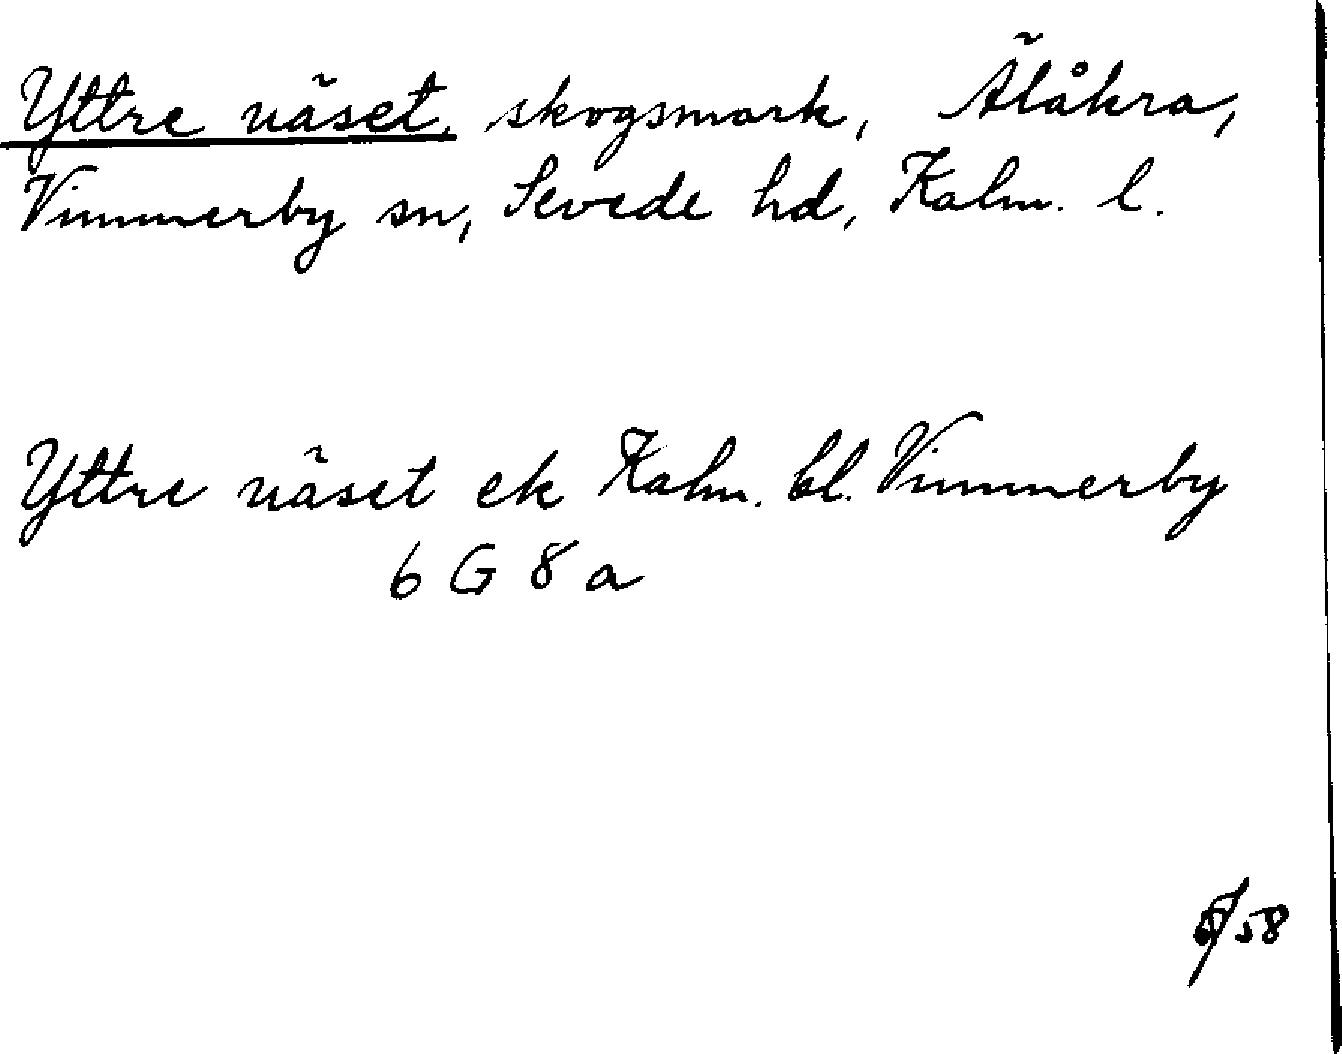 Yttre näset, skogsmark, Älåkra,
Vimmerby sn, Sevede hd, Kalm. l.
Yttre näset ek Kalm. bl. Vimmerby
6 G 8 a
58